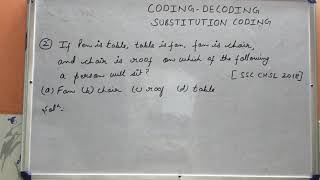 CODING-DECODING
SUBSTITUTION CODING
② If Pen is table, table is fan, fan is chair,
and chair is roof on which of the following
a person will sit?
[SSC CHSL 2018]
(a) Fan (b) chair (c) roof (d) table
Solⁿ-